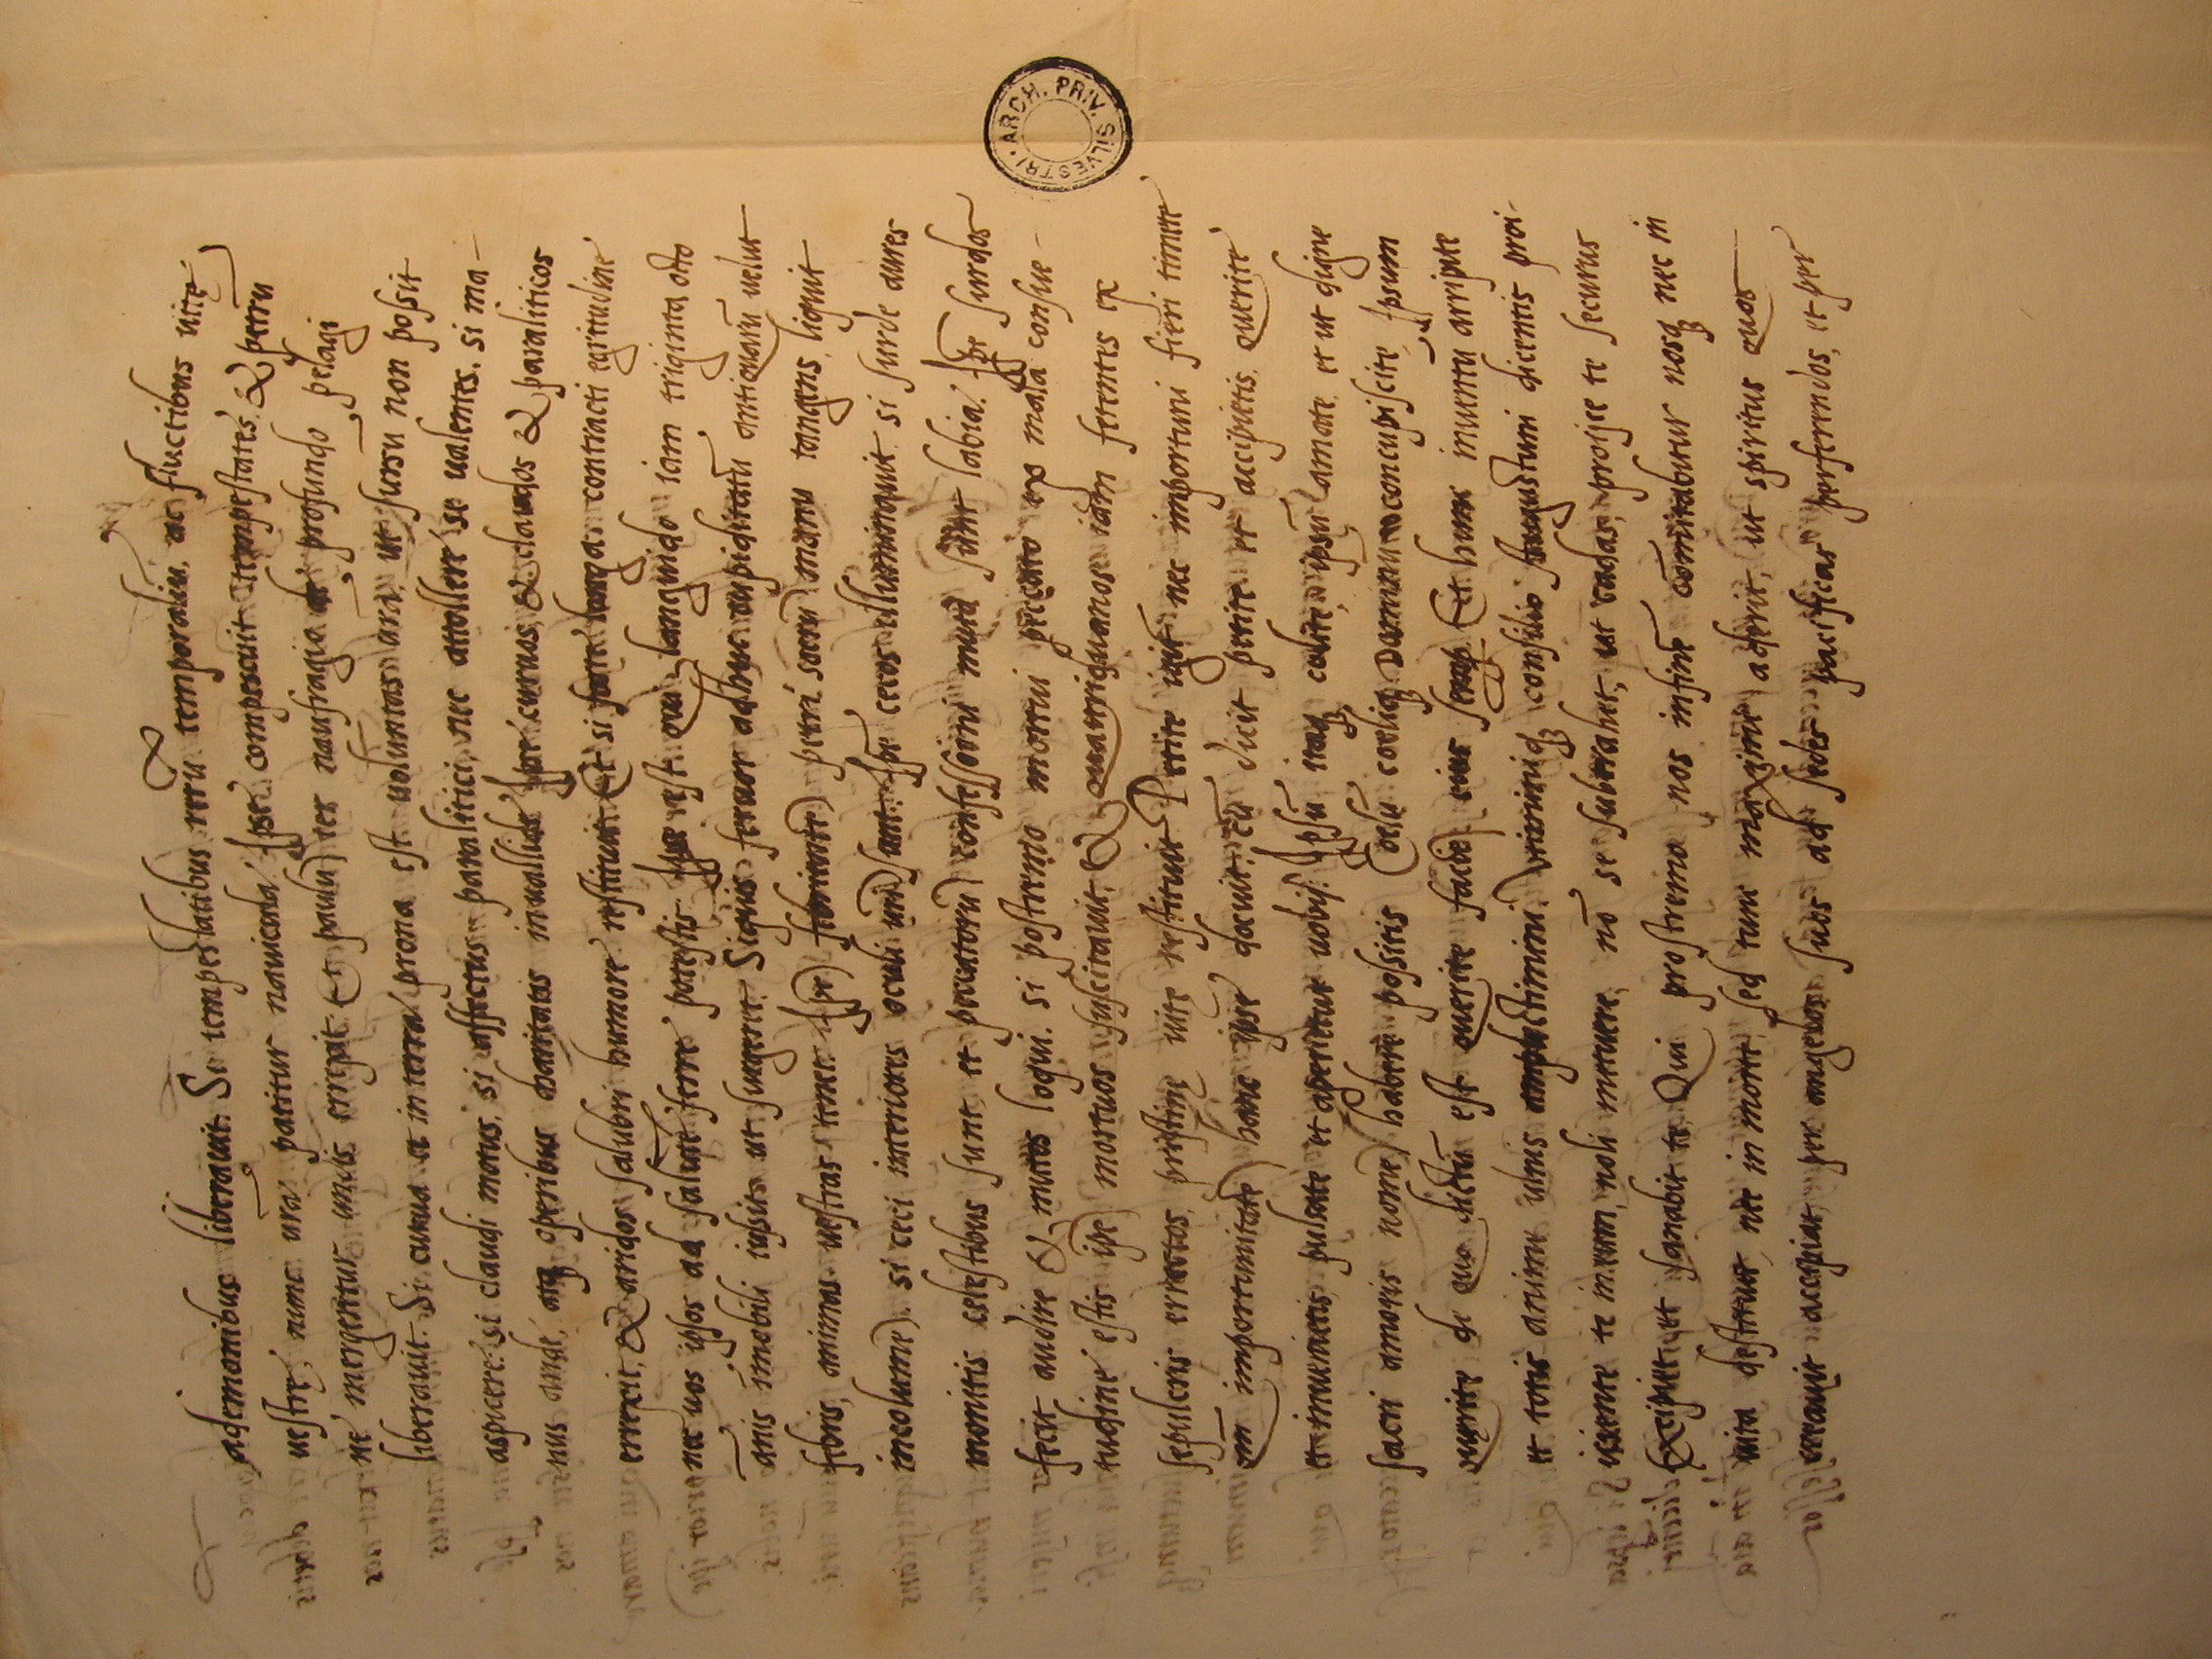 ARCH. PRIV. SILVESTRI
ademonibus liberauit. Si tempestatibus rerū temporaliū, ac fluctibus uitę
uestrę, nunc ūra patitur nauicula. Ipse compescuit tempestates, & petrū
ne mergeretur undis eripit. Et paulū ter naufragia de profundo pelagi
liberauit. Si curua et in terrā prona est uoluntas ūra, ut sursū non possit
aspicere. si claudi motus, si affectus paralitici, nec attollere se ualentes. si ma-
nus aridę, atq operibus charitatis inualidę. Ipse curuos, & claudos & paraliticos
errexit, & aridos salubri humore restituit. Et si forte longa contracti egritudine
nec uos ipsos ad salutē ferre potestis. Ipse est qui languido iam triginta octo
annis imobili iussit ut surgeret. Siquis feruor adhuc cupiditatū antiquarū uelut
febris, animas uestras tenet. Ipse febricitātē petri socrū manu tangens, liquit
incolumē. si ceci interiores oculi ūri sunt. Ipse cecos illuminauit. si surdę aures
monitis celestibus sunt, et peccatorū confessioni muta sunt labia. Ipse surdos
fecit audire & mutos loqui. si postremo mortui peccato ex mala consue-
tudine estis ipse mortuos suscitauit, & quatriduanos iam fetentes ex
sepulcris erectos, pristinę uitę restituit. Petite igit nec importuni fieri timete
em importunitatē hanc ipse docuit, cū dicit petite et accipietis, querite
et inuenietis, pulsate et aperietur uobis. Ipsū itaq colite, ipsū amate, et ut digne
sacri amoris nomē habere possitis Coelū coeliq Dominū concupiscite, Ipsum
querite de quo dictū est querite faciē eius semp. Et hunc inuentū arripite
et totis animi ulnis amplectimini. Utiminiq consilio Augustini dicentis proi-
icientē te in eum, noli metuere, nō se subtrahet, ut cadas, proijce te securus
Excipiet et sanabit te. Qui postremo nos infine comitabitur nosq nec in
uita destituet, nec in morte, sed tunc maxime aderit, ut spiritus quos
creauit accipiat, per angelos suos ad sedes pacificas perferendos, et per